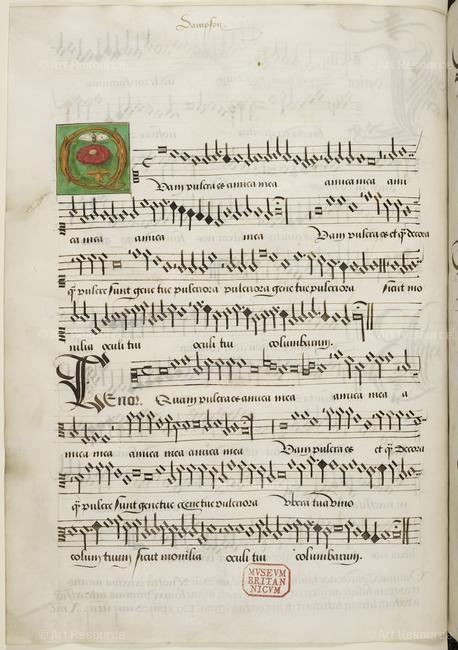 Sampson.
Quam pulcra es amica mea amica mea ami
ca mea amica mea Quam pulcra es et q̄ decora
q̄ pulcre sunt gene tue pulcriora pulcriora gene tue pulcriora sicut mo
nilia oculi tui oculi tui columbarum.
Tenor. Quam pulcra es amica mea amica mea a
mica mea amica mea amica mea Quam pulcra es et q̄ decora
q̄ pulcre sunt gene tue gene tue pulcriora Ubera tua vino
collum tuum sicut monilia oculi tui columbarum.
MVSEVM
BRITAN
NICVM
© Art Resource
© Art Resource
© Art Resource
© Art Resource